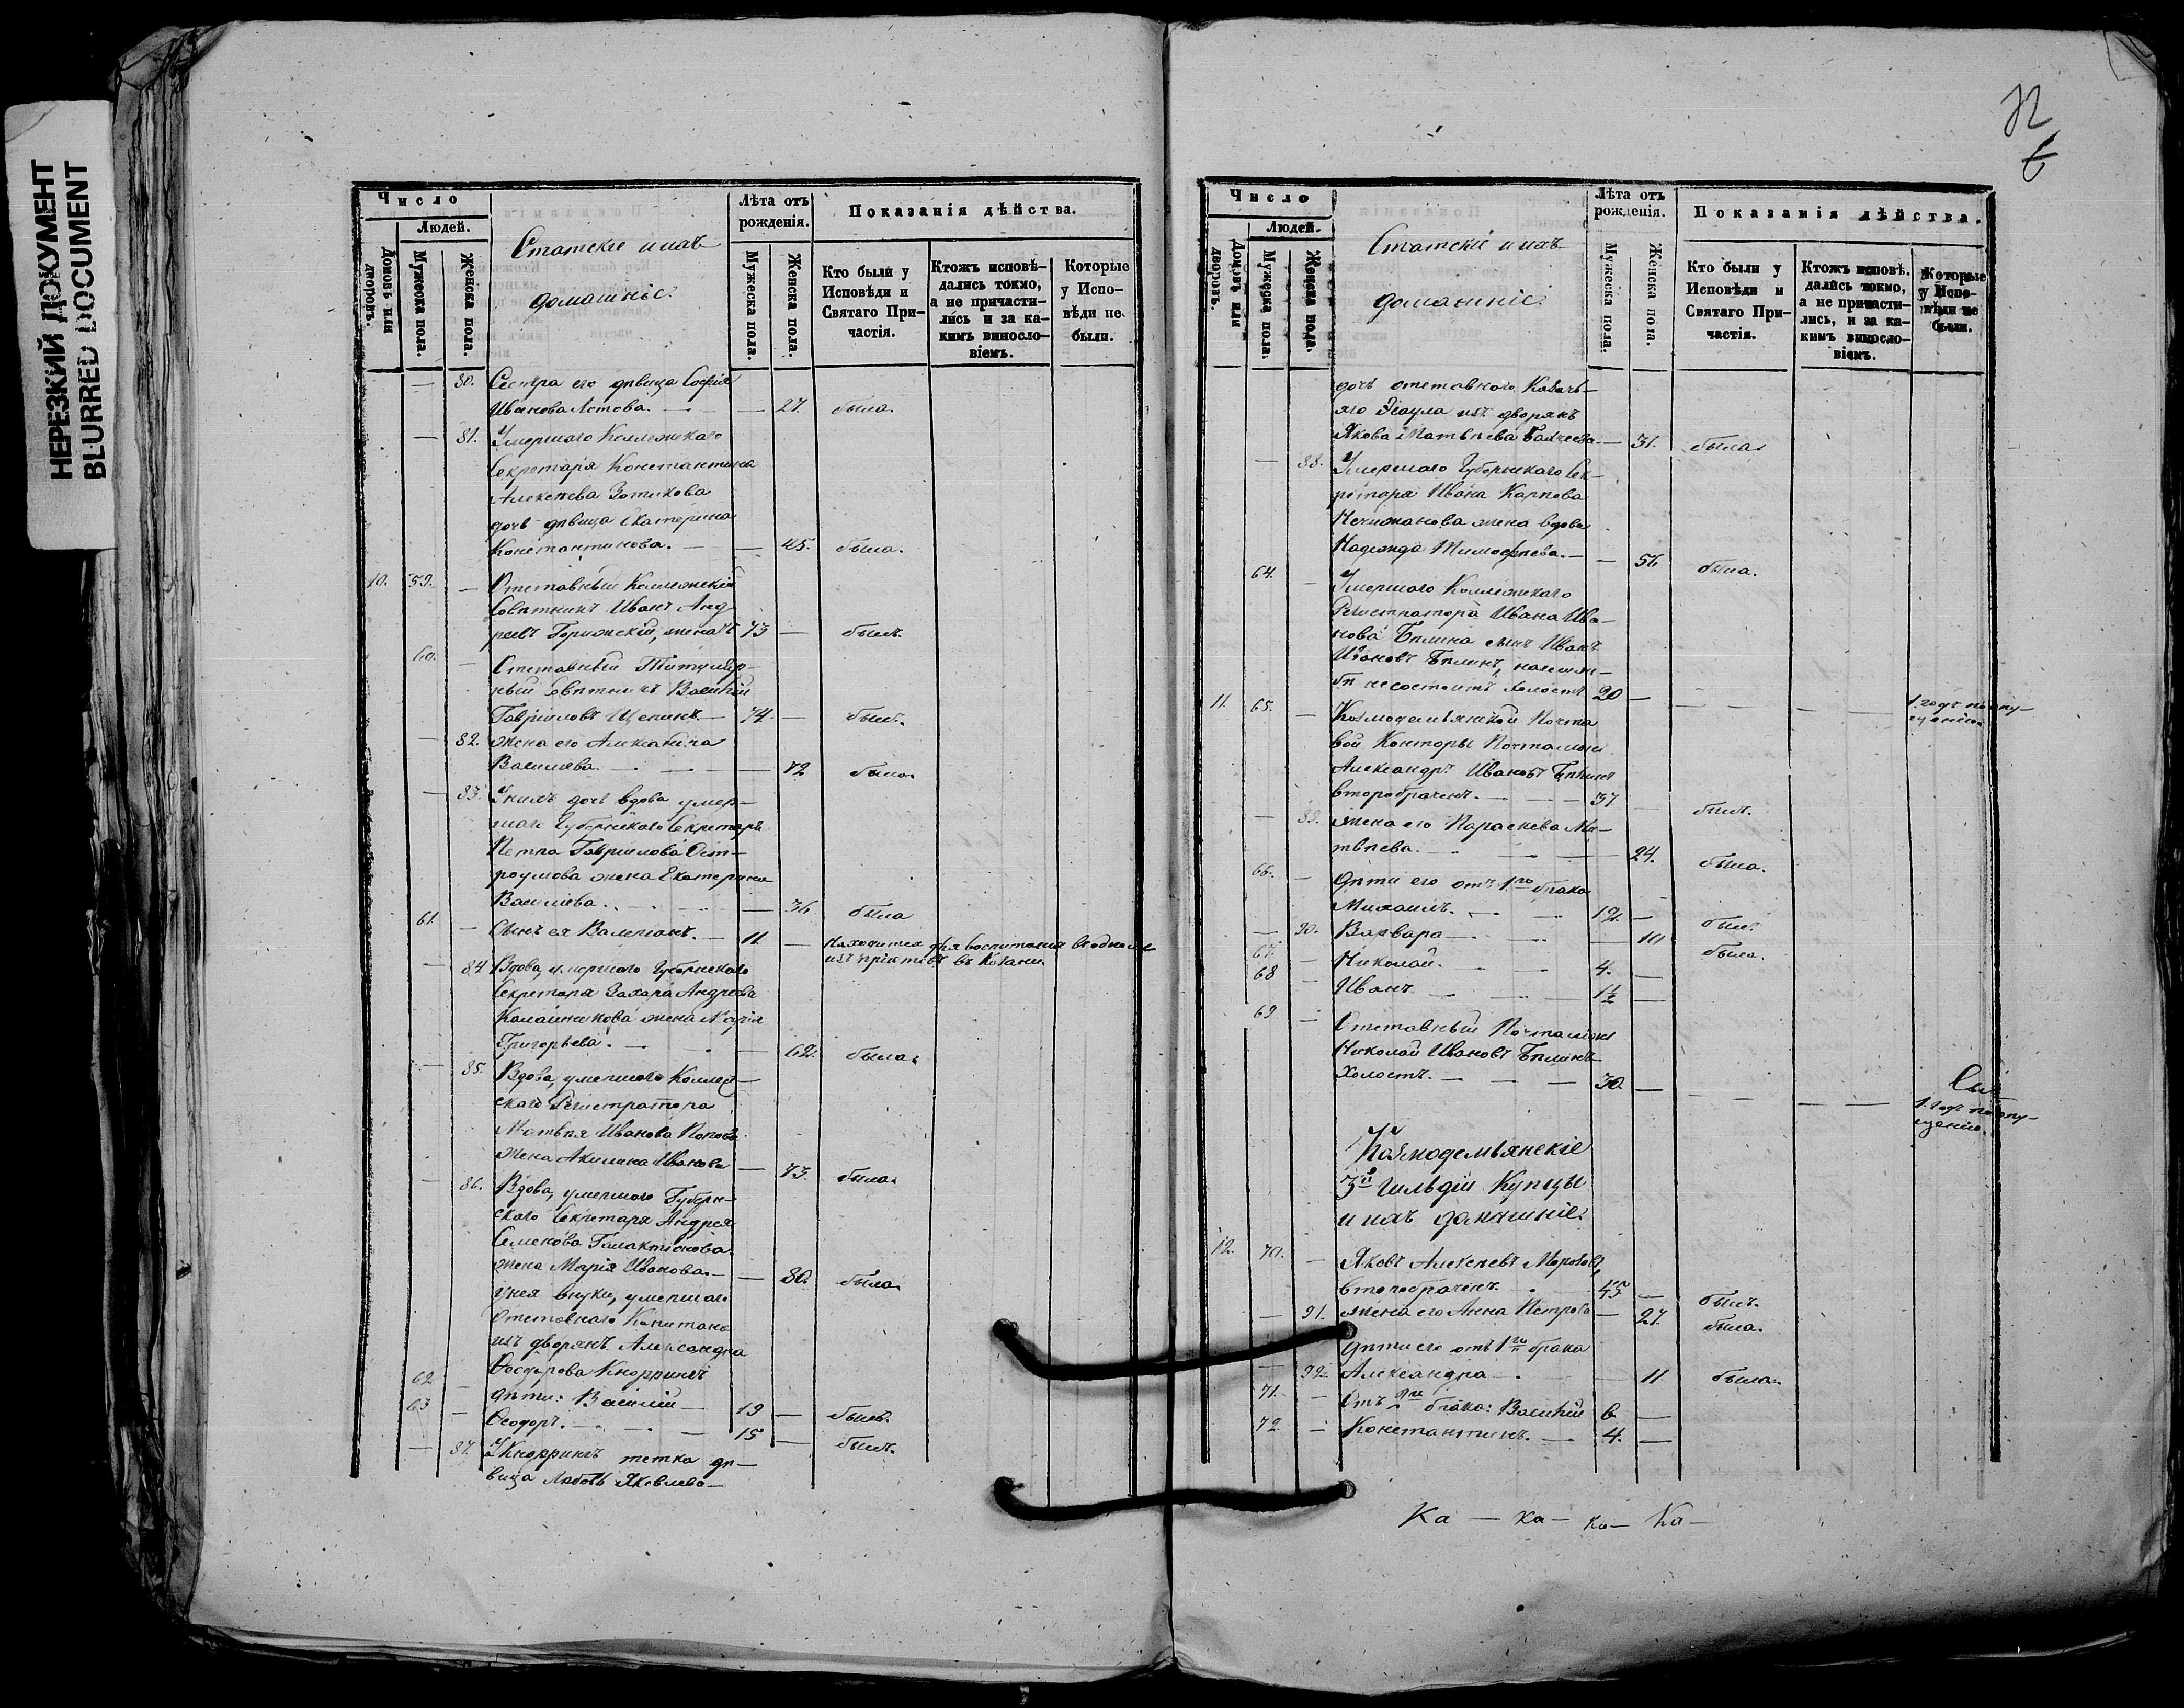 НЕРЕЗКИЙ ДОКУМЕНТ
BLURRED DOCUMENT
Число
Людей.
Домовъ или дворовъ.
Мужеска пола.
Женска пола.
Статскіе и ихъ
домашніе.
Лѣта отъ
рожденія.
Мужеска пола.
Женска пола.
Показанія дѣйства.
Кто были у
Исповѣди и
Святаго При-
частія.
Ктожъ исповѣ-
дались токмо,
а не причасти-
лись и за ка-
кимъ виносло-
віемъ.
Которые
у Испо-
вѣди не
были.
— 80. Сестра его дѣвица Софія
Иванова — — 27. была.
— 81. Умершаго Коллежскаго
Секретаря Константина
Алексѣева Зотикова
дочь дѣвица Екатерина
Константинова. — — 45. была.
10. 59. — Отставный Коллежскій
Совѣтникъ Иванъ Анд
реевъ 73 — былъ.
60. — Отставный Титуляр-
ный Совѣтникъ Василій
Гавриловъ Щепинъ. — 74. — былъ.
— 82. жена его Александра
Васильева. — — 72 была.
— 83. У нихъ дочь вдова умер-
шаго Губернскаго Секретаря
Петра Гаврилова Ост-
роумова жена Екатерина
Васильева. — — 36 была
61. — Сынъ ея Валеріанъ. — 11. — Находится для воспитанія въ одномъ
изъ пріютовъ въ Казани.
— 84 Вдова, умершаго Губернскаго
Секретаря Захара Андреева
Калашникова жена Марія
Григорьева. — — 62. была.
— 85. Вдова, умершаго Коллеж-
скаго Регистратора
Матвѣя Иванова Попова
жена Акилина Иванова — 73. была.
— 86. Вдова, умершаго Губерн-
скаго Секретаря Андрея
Семенова Галактіонова
жена Марія Иванова. — — 80. была.
У нея внуки, умершаго
Отставнаго Капитана
изъ дворянъ Александра
Ѳеодорова Кнорринга
62 — дѣти: Василій — 19 — былъ.
63 — Ѳеодоръ. — — 15 — былъ.
— 87. У Кноррингъ тетка дѣ-
вица Любовь Яковлева —
Число
Людей.
Домовъ или дворовъ.
Мужеска пола.
Женска пола.
Статскіе и ихъ
домашніе.
Лѣта отъ
рожденія.
Мужеска пола.
Женска пола.
Показанія дѣйства.
Кто были у
Исповѣди и
Святаго При-
частія.
Ктожъ исповѣ-
дались токмо,
а не причасти-
лись, и за ка-
кимъ виносло-
віемъ.
Которые
у Испо-
вѣди не
были.
дочь отставного Казачь-
яго Эсаула изъ дворянъ
Якова Матвѣева — 31. была.
— 88. Умершаго Губернскаго Сек-
ретаря Ивана Карпова
жена вдова
Надежда Тимофѣева. — — 56 была.
64. — Умершаго Коллежскаго
Регистратора Ивана Ива-
нова Бѣлина сынъ Иванъ
Ивановъ Бѣлинъ, на служ-
бѣ не состоитъ холостъ 20 — — — 1. годъ по опу-
щенію.
11. 65. — Козмодемьянской Почто
вой Конторы Почталіонъ
Александръ Ивановъ Бѣлинъ
второбраченъ. — — 37 — былъ.
— 89. жена его Параскева Ма-
твѣева. — — 24. была.
66. — дѣти его отъ 1го брака
Михаилъ. — — 12. — былъ.
— 90. Варвара — — — 10 была.
67. — Николай. — — 4. —
68 — Иванъ — — 1½ —
69 — Отставный Почталіонъ
Николай Ивановъ Бѣлинъ
Холостъ. — — — 30. — — —
1. годъ по опу-
щенію.
Козмодемьянскіе
3й гильдіи Купцы
и ихъ домашніе.
12. 70. — Яковъ Алексѣевъ Морозовъ,
второбраченъ. — 45 — былъ.
— 91. жена его Анна Петрова — 27. была.
дѣти его отъ 1го брака
— 92. Александра — — 11 была.
71. — Отъ 2го брака: Василій 6 —
72 — Константинъ. — 4. —
Ка — ка — ка — Ка —